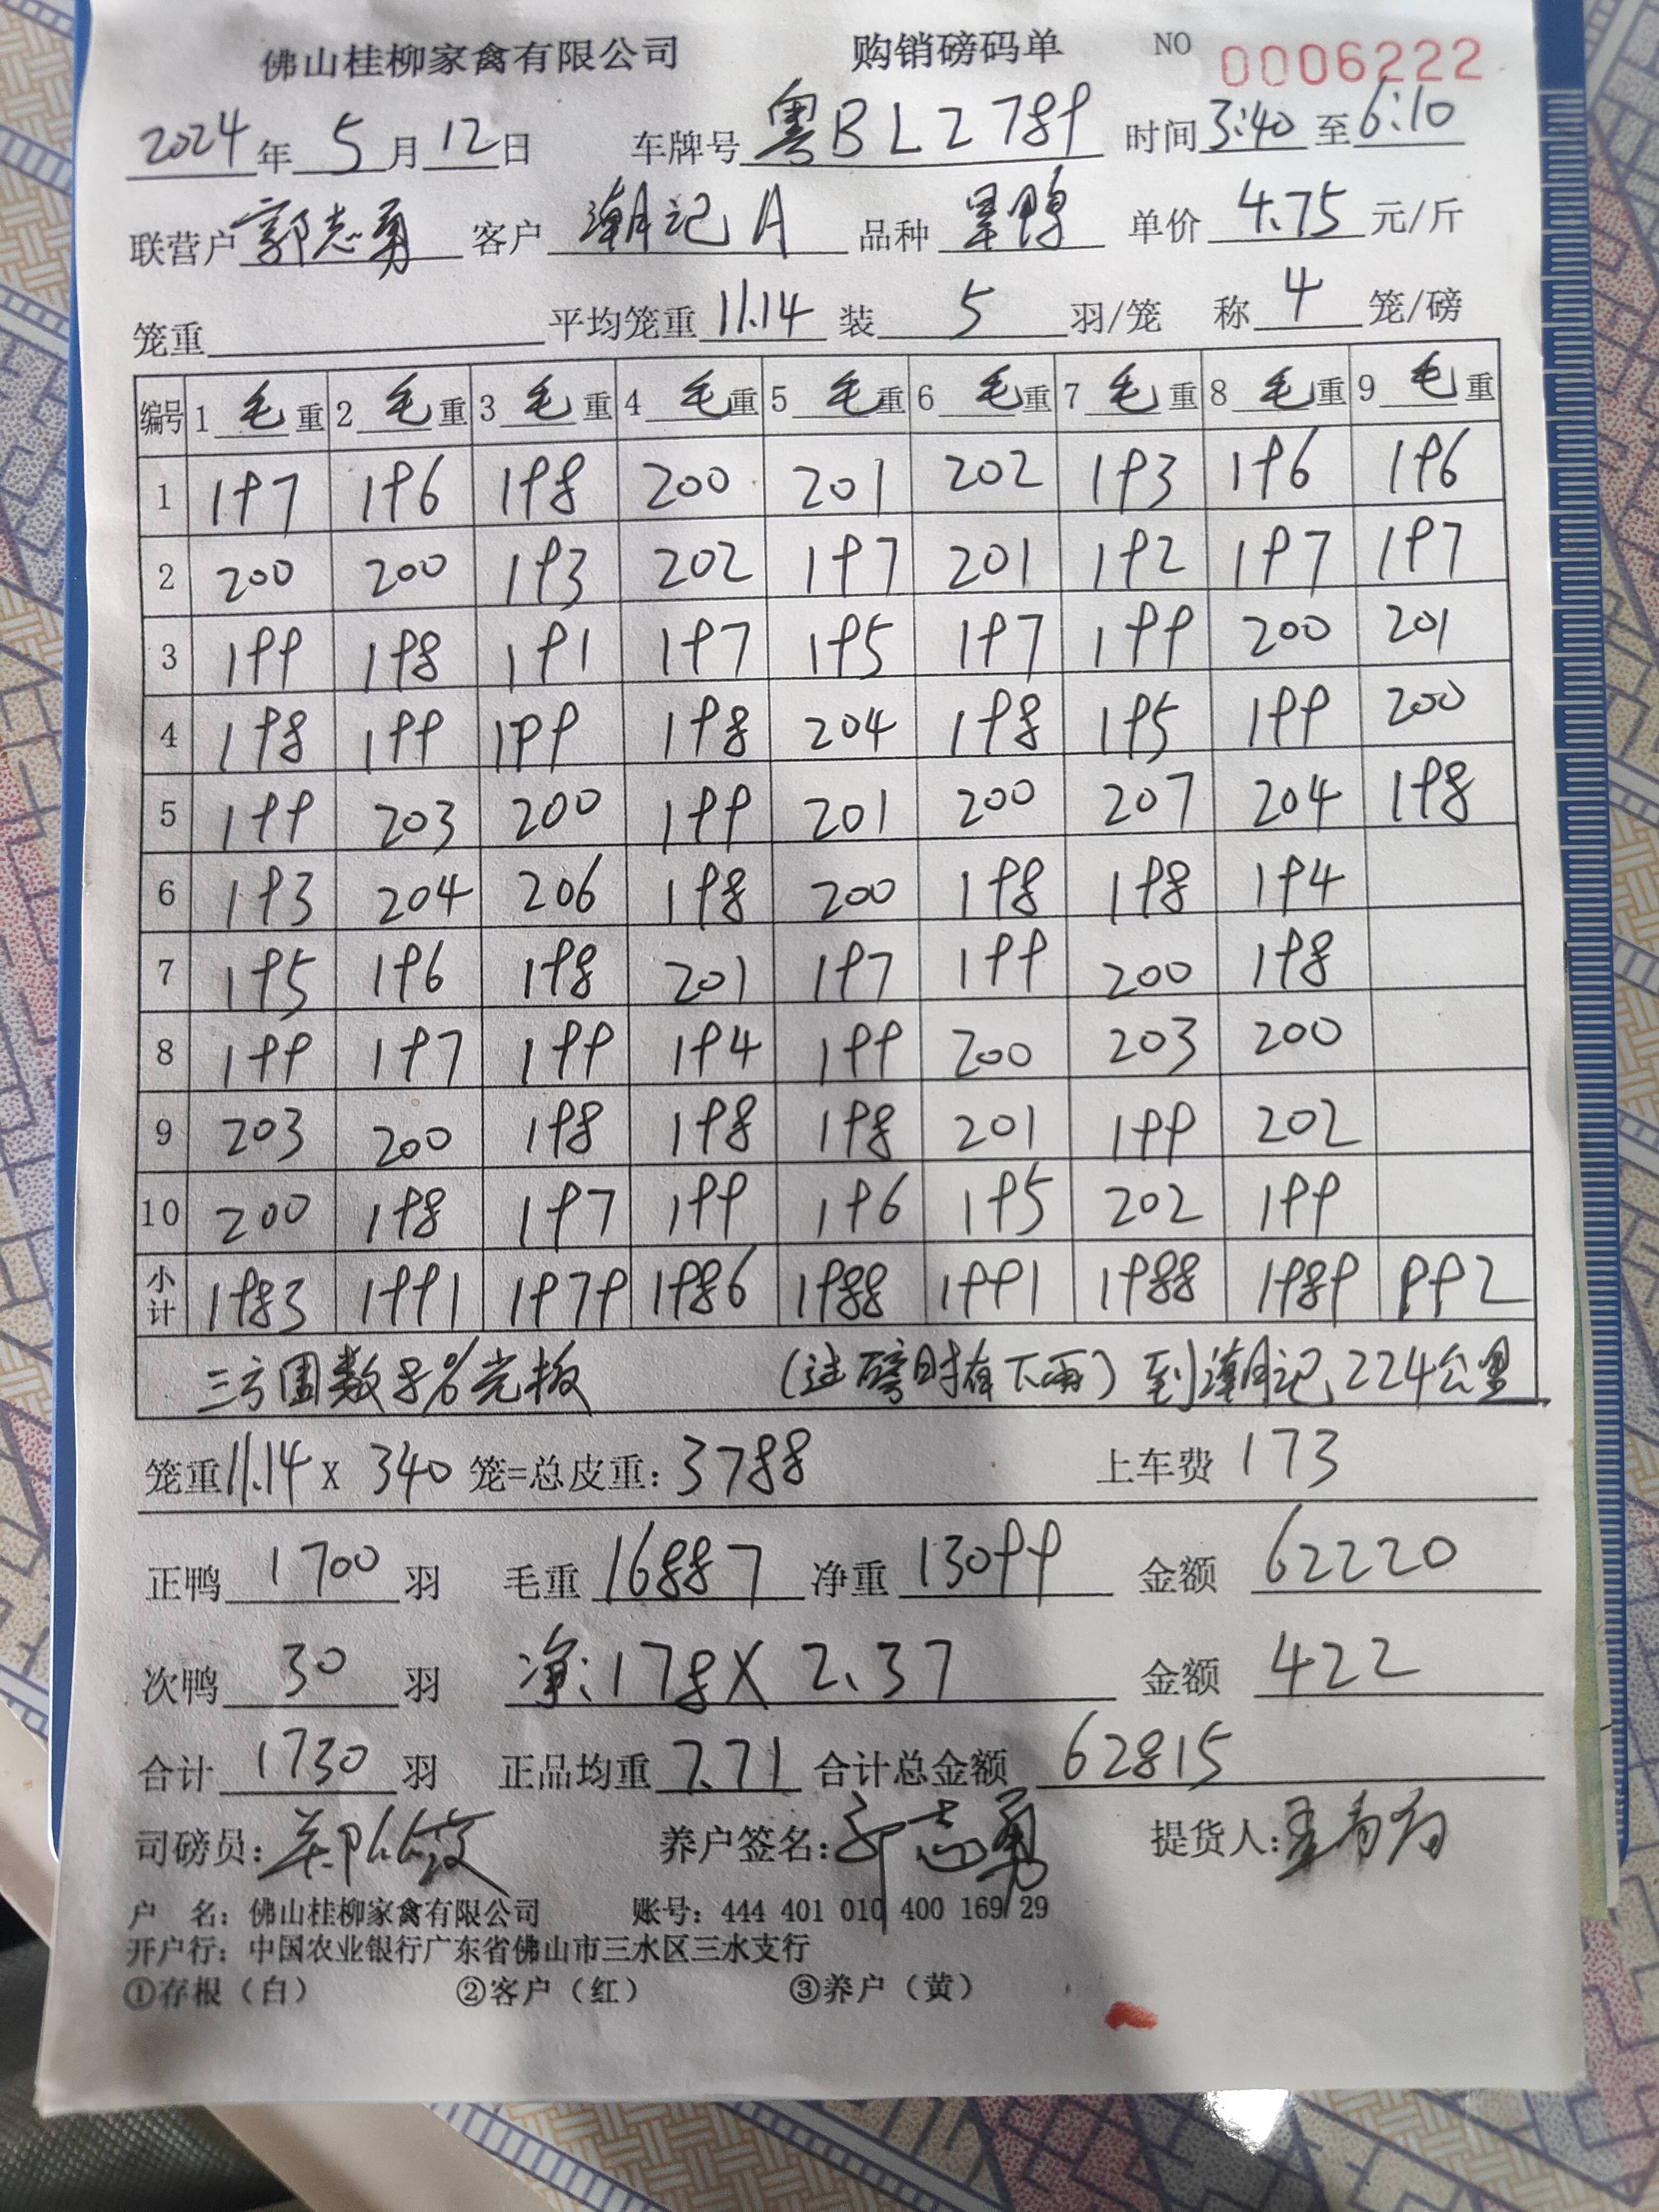 佛山桂柳家禽有限公司 购销磅码单 NO 0006222
2024年 5月12日 车牌号 粤BL2789 时间3:40至6:10
联营户 郭志勇 客户 潮记A 品种 鸭 单价 4.75 元/斤
笼重 平均笼重 11.14 装 5 羽/笼 称 4 笼/磅
编号 1 毛重 2 毛重 3 毛重 4 毛重 5 毛重 6 毛重 7 毛重 8 毛重 9 毛重
1 197 196 198 200 201 202 193 196 196
2 200 200 193 202 197 201 192 197 197
3 199 198 191 197 195 197 199 200 201
4 198 199 199 198 204 198 195 199 200
5 199 203 200 199 201 200 207 204 198
6 193 204 206 198 200 198 198 194
7 195 196 198 201 197 199 200 198
8 199 197 199 194 199 200 203 200
9 203 200 198 198 198 201 199 202
10 200 198 197 199 196 195 202 199
小计 1983 1991 1979 1986 1988 1991 1988 1989 992
三方围数 光板 (过磅时有下雨) 到潮记224公里
笼重11.14 x 340 笼=总皮重: 3788 上车费 173
正鸭 1700 羽 毛重 16887 净重 13099 金额 62220
次鸭 30 羽 净:178X2.37 金额 422
合计 1730 羽 正品均重 7.71 合计总金额 62815
司磅员: 养户签名: 郭志勇 提货人:
户 名: 佛山桂柳家禽有限公司 账号: 444 401 010 400 169 29
开户行: 中国农业银行广东省佛山市三水区三水支行
①存根（白） ②客户（红） ③养户（黄）